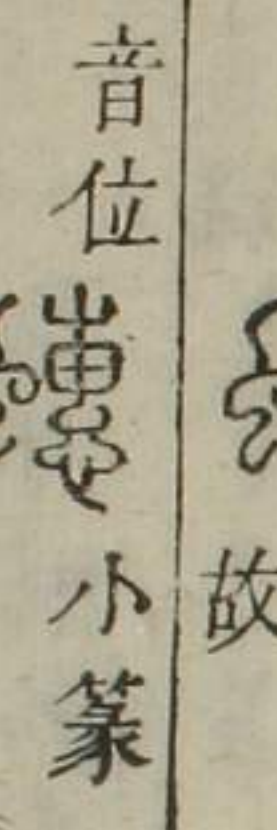 故
音位小篆